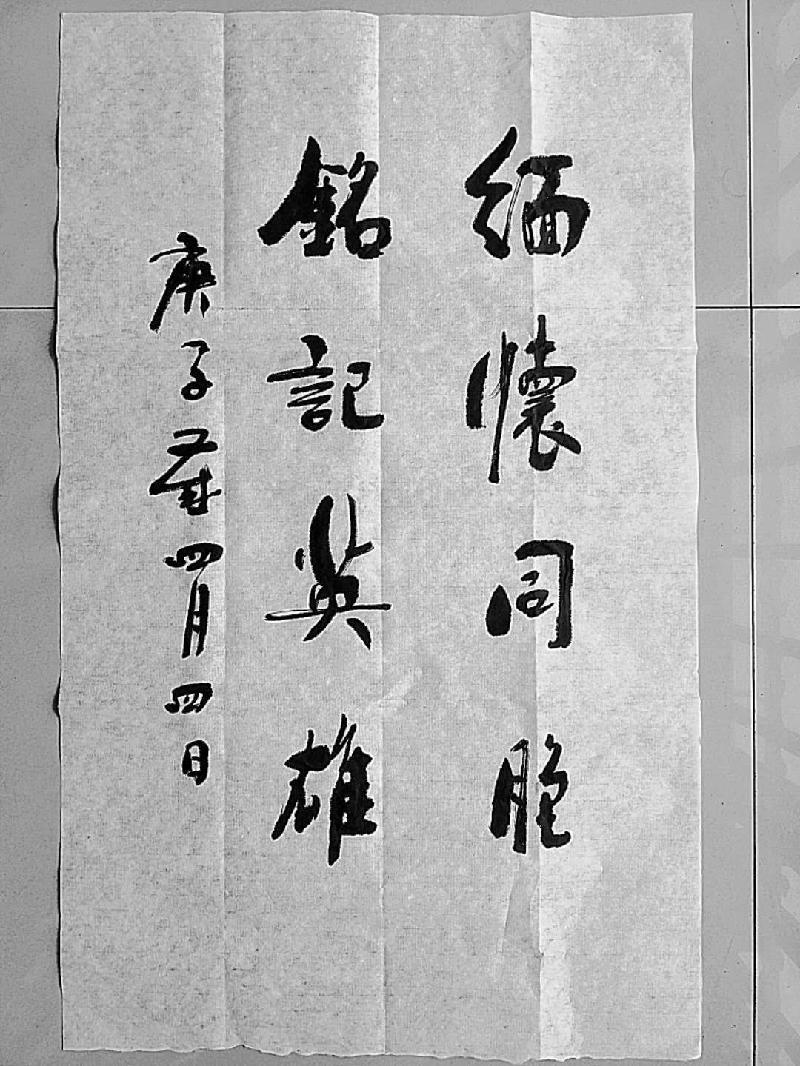 緬懷同胞
銘記英雄
庚子歲四月四日